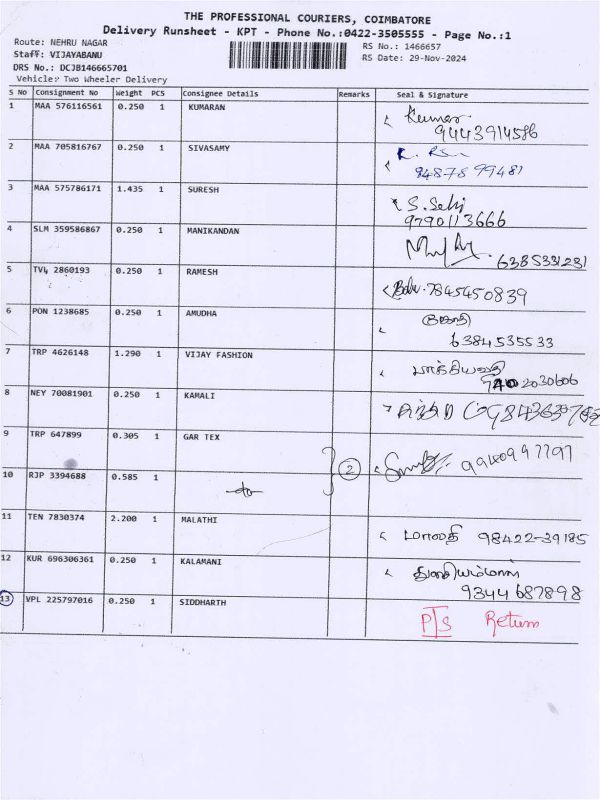 THE PROFESSIONAL COURIERS, COIMBATORE
Delivery Runsheet - KPT - Phone No.:0422-3505555 - Page No.:1
Route: NEHRU NAGAR
RS No.: 1466657
Staff: VIJAYABANU
RS Date: 29-Nov-2024
DRS No.: DCJB146665701
Vehicle: Two Wheeler Delivery
S No Consignment No Weight PCS Consignee Details Remarks Seal & Signature
1 MAA 576116561 0.250 1 KUMARAN Kumar
9443914586
2 MAA 705816767 0.250 1 SIVASAMY
94878 99481
3 MAA 575786171 1.435 1 SURESH
9790113666
4 SLM 359586867 0.250 1 MANIKANDAN 6385331231
5 TVL 2860193 0.250 1 RAMESH 7845450839
6 PON 1238685 0.250 1 AMUDHA
6384535533
7 TRP 4626148 1.290 1 VIJAY FASHION
8 NEY 70081901 0.250 1 KAMALI
9 TRP 647899 0.305 1 GAR TEX 2 9940997797
10 RJP 3394688 0.585 1 -do-
11 TEN 7830374 2.200 1 MALATHI மாலதி 98422-39185
12 KUR 696306361 0.250 1 KALAMANI
9344687898
13 VPL 225797016 0.250 1 SIDDHARTH P/S Return